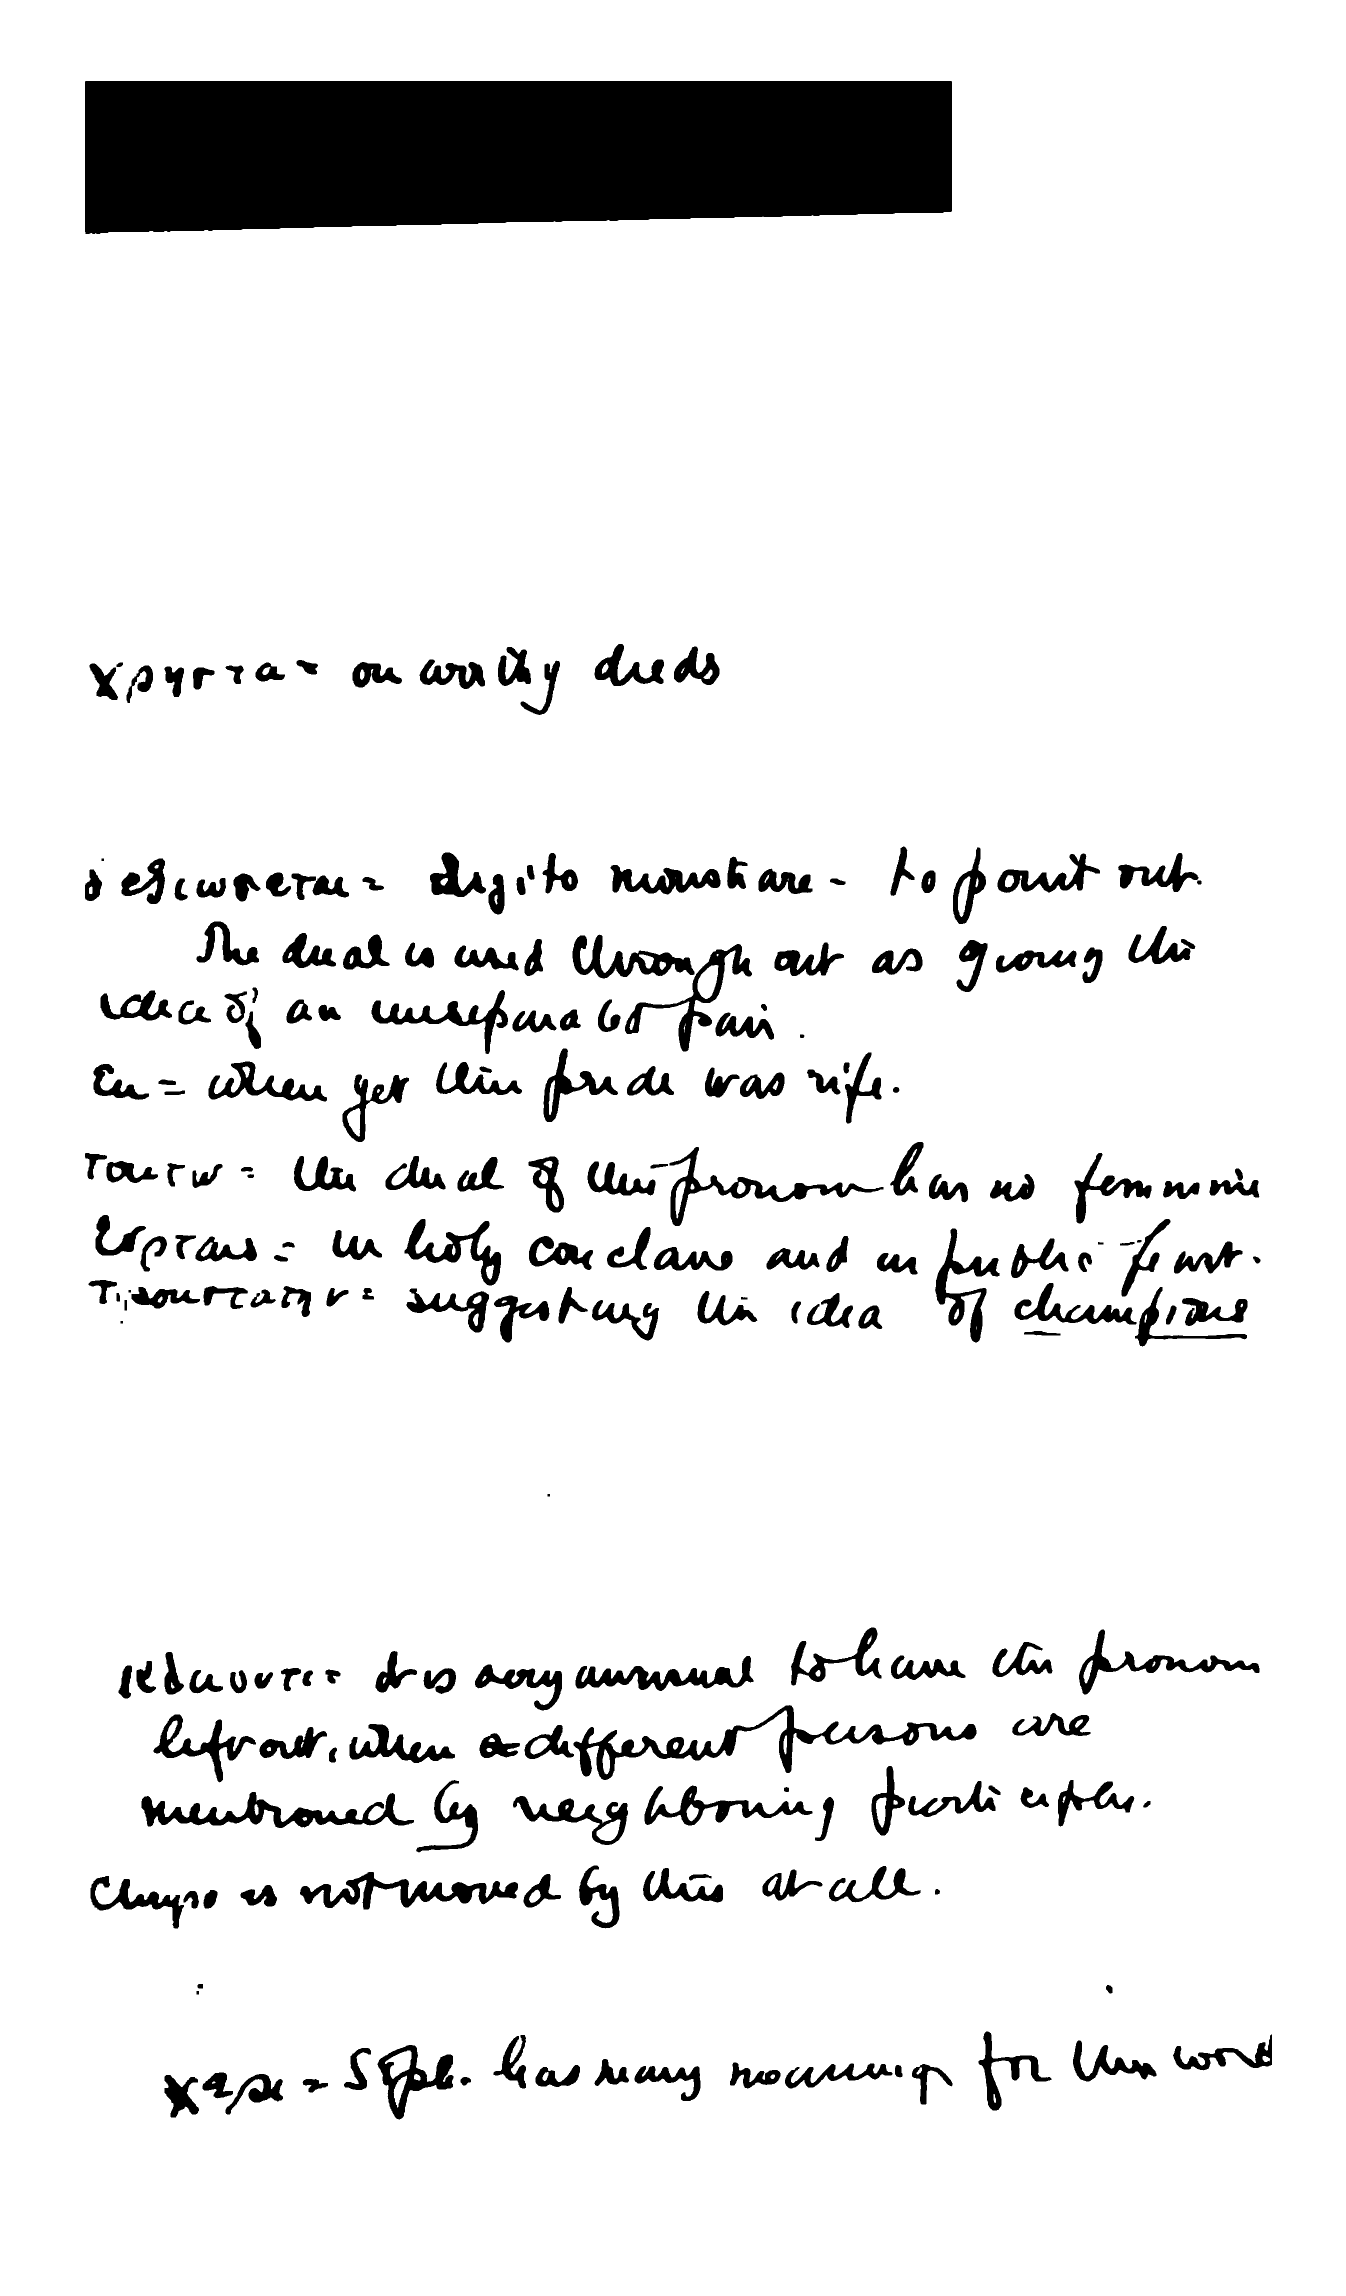 χρηστα = on worthy deeds
δεξιωσεται = digito monstrare - to point out.
The dual is used throughout as giving the
idea of an unseparated pair.
= when yet their pride was rife.
τουτω = the dual of this pronoun has no feminine
εορταις = in holy conclave and in public feast.
= suggesting the idea of champions
κλαυοντι = It is very unusual to have the pronoun
left out, when different persons are
mentioned by neighboring participles.
Chryso is not moved by this at all.
χαρα = Soph. has many meanings for this word